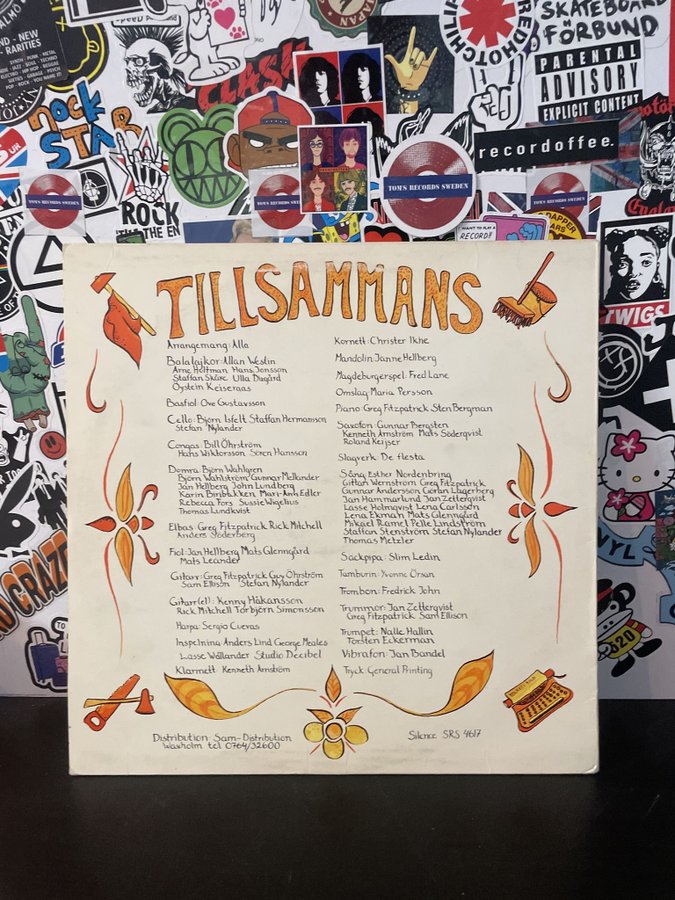 MALMÖ
OLD - NEW
- RARITIES
CLASH
RED HOT CHILI
SKATEBOARD
FÖRBUND
PARENTAL
ADVISORY
EXPLICIT CONTENT
rock
STAR
recordoffee.
TOMS RECORDS SWEDEN
TOMS RECORDS SWEDEN
TOMS RECORDS SWEDEN
TOMS RECORDS SWEDEN
ROCK
I WANT TO PLAY A
RECORD!
DAPPER
TWIGS
CRAZE
VINYL
320
TILLSAMMANS
Arrangemang: Alla
Balalajkor: Allan Westin
Arne Holtman Hans Jonsson
Staffan Skäre Ulla Dugård
Öystein Keiseraas
Basfiol Ove Gustavsson
Cello: Björn Isfelt Staffan Hermanson
Stefan Nylander
Congas Bill Öhrström
Hans Wiktorsson Sören Hansson
Domra Björn Wahlgren
Björn Wahlström Gunnar Mellander
Jan Hellberg John Lundberg
Karin Biribakken Mari-Ann Edler
Rebecca Fors Sussie Wigelius
Thomas Lundkvist
Elbas: Greg Fitzpatrick Rick Mitchell
Anders Söderberg
Fiol: Jan Hellberg Mats Glenngård
Mats Leander
Gitarr: Greg Fitzpatrick Guy Öhrström
Sam Ellison Stefan Nylander
Gitarr(el): Kenny Håkansson
Rick Mitchell Torbjörn Simonsson
Harpa: Sergio Cuevas
Inspelning: Anders Lind George Meales
Lasse Wållander Studio Decibel
Klarinett: Kenneth Arnström
Kornett: Christer Ikhe
Mandolin: Janne Hellberg
Magdeburgerspel: Fred Lane
Omslag: Maria Persson
Piano Greg Fitzpatrick Sten Bergman
Saxofon: Gunnar Bergsten
Kenneth Arnström Mats Söderqvist
Roland Keijser
Slagverk De flesta
Sång: Esther Nordenbring
Gittan Wernström Greg Fitzpatrick
Gunnar Andersson Göran Lagerberg
Jan Hammarlund Jan Zetterqvist
Lasse Holmqvist Lena Carlsson
Lena Ekman Mats Glenngård
Mikael Ramel Pelle Lindström
Staffan Stenström Stefan Nylander
Thomas Metzler
Säckpipa: Slim Ledin
Tamburin: Yvonne Örsan
Trombon: Fredrick John
Trummor: Jan Zetterqvist
Greg Fitzpatrick Sam Ellison
Trumpet: Nalle Hallin
Torsten Eckerman
Vibrafon: Jan Bandel
Tryck: General Printing
Distribution: Sam-Distribution
Waxholm tel 0764/32600
Silence SRS 4617